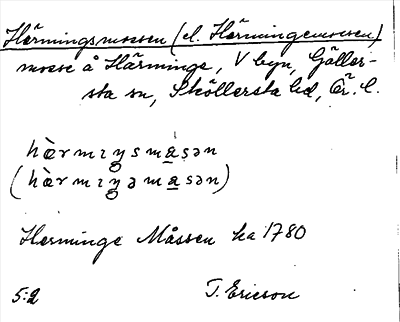 Härmingsmossen (el. Härmingemossen)
mosse å Härminge, V byn, Gäller-
sta sn, Sköllersta hd, Ör. l.
hæ̀rmɩŋsma̲sən
(hæ̀rmɩŋəma̲sən)
Herminge Måssen ka 1780
5:2 T. Ericson